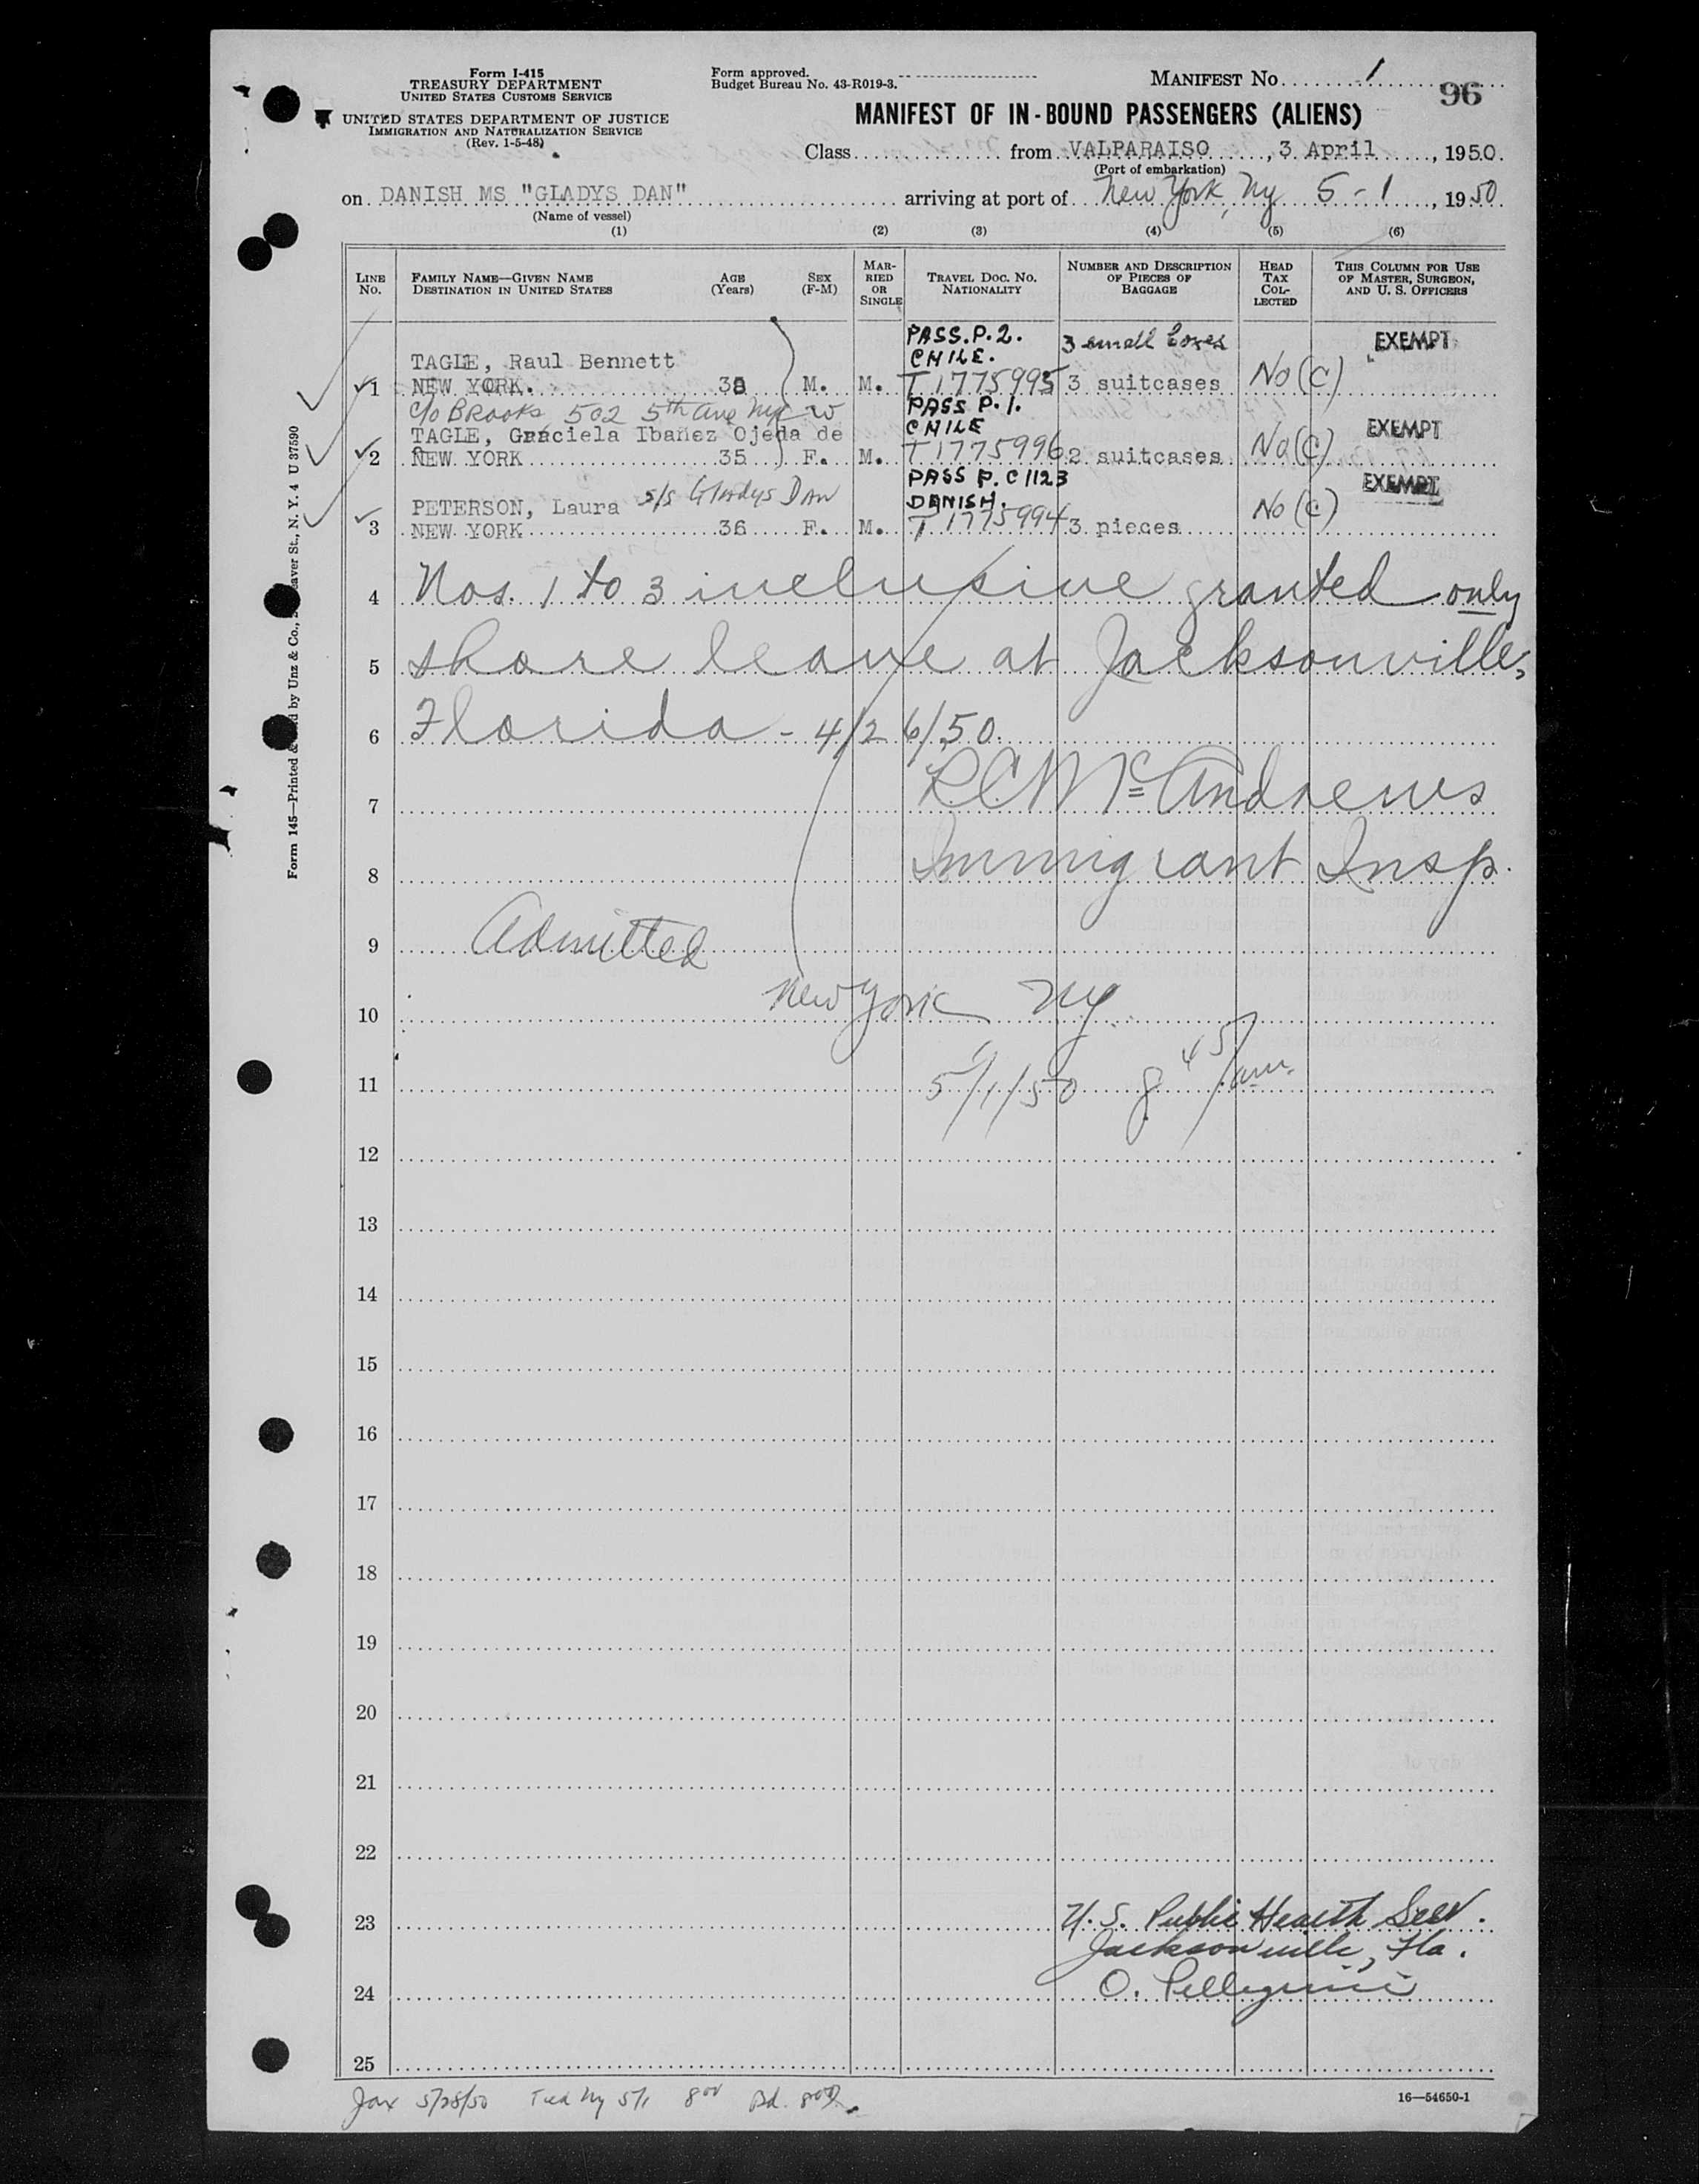 Form I-415
TREASURY DEPARTMENT
UNITED STATES CUSTOMS SERVICE
UNITED STATES DEPARTMENT OF JUSTICE
IMMIGRATION AND NATURALIZATION SERVICE
(Rev. 1-5-48)
Form approved.
Budget Bureau No. 43-R019-3.
MANIFEST No. 1
96
MANIFEST OF IN-BOUND PASSENGERS (ALIENS)
Class from VALPARAISO, 3 April, 1950.
(Port of embarkation)
on DANISH MS "GLADYS DAN" arriving at port of New York, Ny 5-1, 1950
(Name of vessel)
(1) (2) (3) (4) (5) (6)
LINE No. FAMILY NAME—GIVEN NAME DESTINATION IN UNITED STATES AGE (Years) SEX (F-M) MARRIED OR SINGLE TRAVEL DOC. NO. NATIONALITY NUMBER AND DESCRIPTION OF PIECES OF BAGGAGE HEAD TAX COLLECTED THIS COLUMN FOR USE OF MASTER, SURGEON, AND U. S. OFFICERS
PASS. P. 2. 3 small boxes EXEMPT
TAGLE, Raul Bennett CHILE.
1 NEW YORK. 38 M. M. T 1775995 3 suitcases No (C)
c/o BRooks 502 5th ave Nyc PASS P. 1.
TAGLE, Graciela Ibanez Ojeda de CHILE EXEMPT
2 NEW YORK 35 F. M. T 1775996 2 suitcases No (C)
PASS P. C 1123 EXEMPT
PETERSON, Laura s/s Gladys Dan DANISH.
3 NEW YORK 36 F. M. T 1775994 3 pieces No (C)
4 Nos. 1 to 3 inclusive granted only
5 shore leave at Jacksonville,
6 Florida - 4/26/50.
7 R C McAndrews
8 Immigrant Insp.
9 Admitted
10 New York Ny
11 5/1/50 8 45/am.
12
13
14
15
16
17
18
19
20
21
22
23 U. S. Public Health Serv.
Jacksonville, Fla.
24 O. Pellegrini
25
Jax 5/28/50 Ny 5/1 8 00
16—54650-1
Form 145—Printed & by Unz & Co., eaver St., N. Y. 4 U 37590